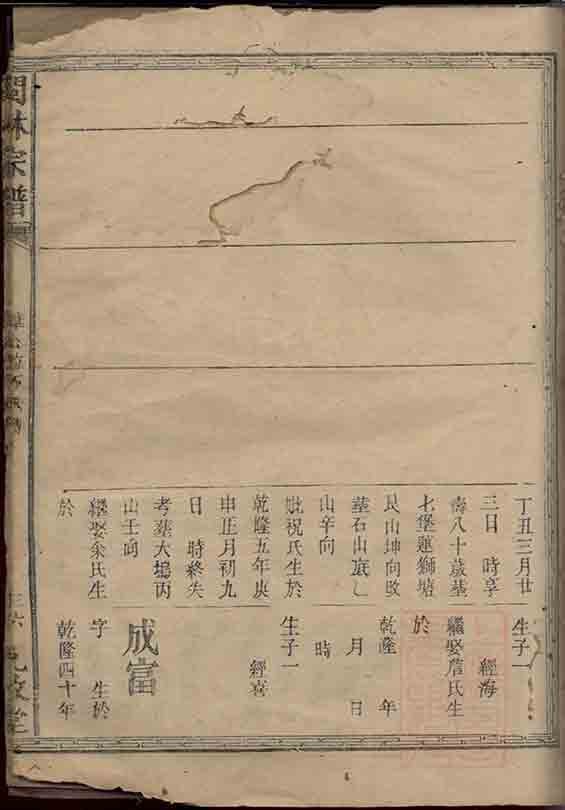 丁丑三月廿
三日 時享
壽八十歲墓
七堡蓮獅塘
艮山坤向改
墓石山底乙
山辛向
妣祝氏生於
乾隆五年庚
申正月初九
日 時終失
考葬大塢丙
山壬向
繼娶余氏生
於
生子一
經海
繼娶詹氏生
於
乾隆 年
月 日
時
生子一
經喜
成富
字 生於
乾隆四十年
閩林宗譜
三六
九牧堂